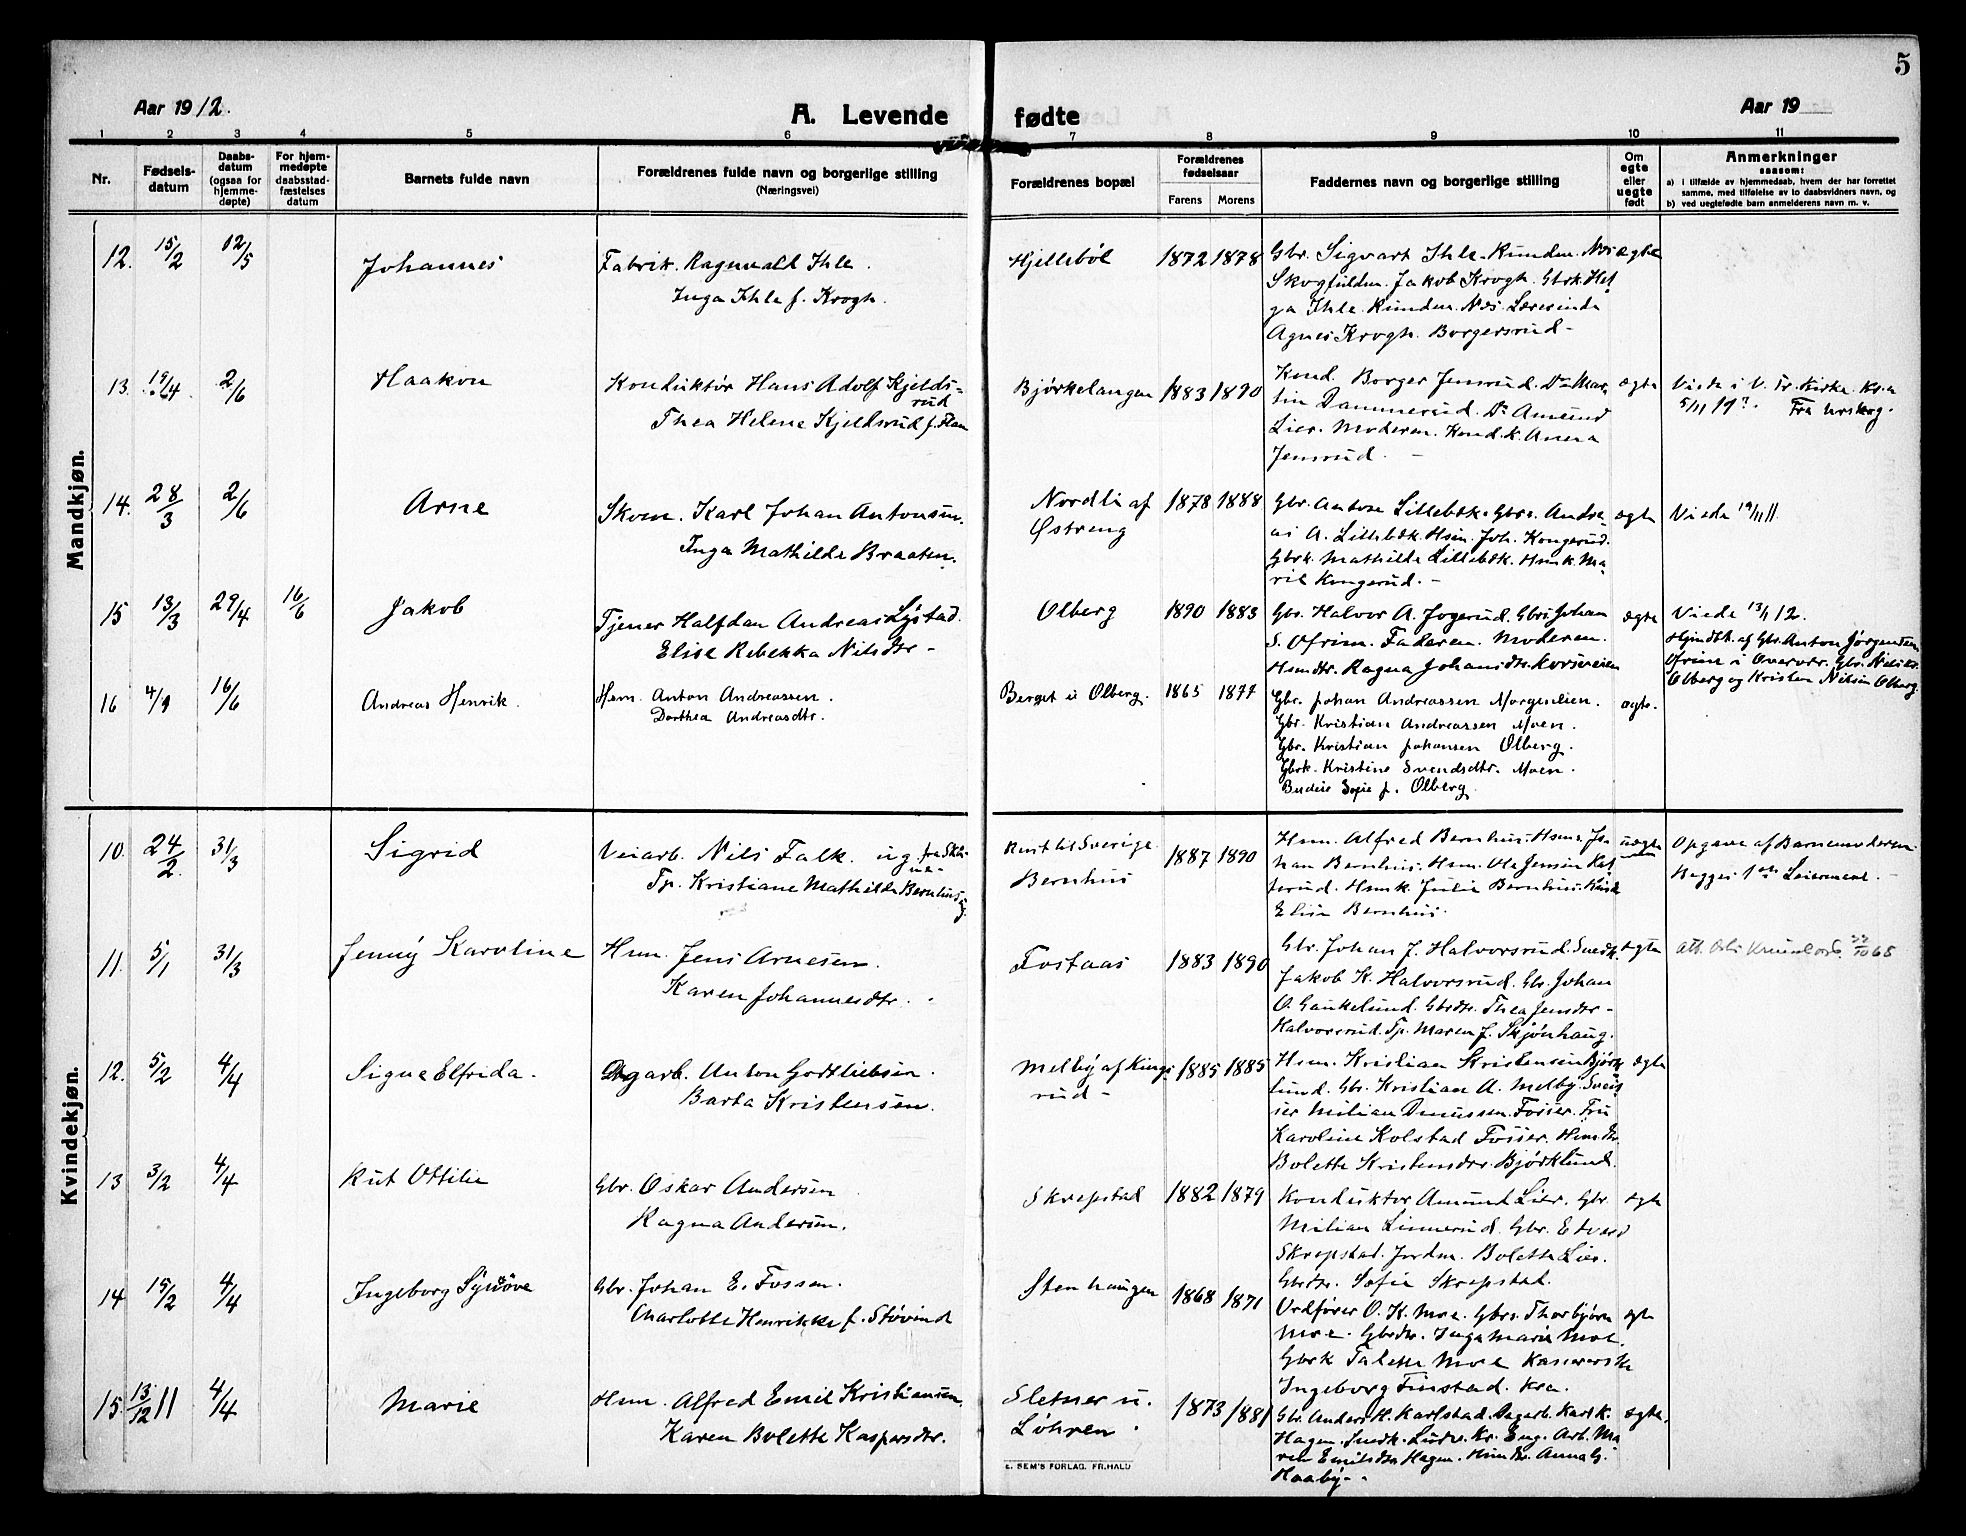 5
Aar 1912.
A. Levende fødte
Aar 19
1 2 3 4 5 6 7 8 9 10 11
Nr.
Fødsels-
datum
Daabs-
datum
(ogsaa for
hjemme-
døpte)
For hjem-
medøpte
daabsstad-
fæstelses
datum
Barnets fulde navn
Forældrenes fulde navn og borgerlige stilling
(Næringsvei)
Forældrenes bopæl
Forældrenes
fødselsaar
Farens Morens
Faddernes navn og borgerlige stilling
Om
egte
eller
uegte
født
Anmerkninger
saasom:
a) i tilfælde av hjemmedaab, hvem der har forrettet
samme, med tilføielse av to daabsvidners navn, og
b) ved uegtefødte barn anmelderens navn m. v.
Mandkjøn.
12. 15/2 12/5 Johannes
Fabrik. Ragnvald Ihle.
Inga Ihle f. Krogh.
Hjellebøl 1872 1878
Gbr. Sigvart Ihle. Runden. Næs
Skogfuldm. Jakob Krogh. Gbrk. Hel
ga Ihle. Runden. Næs. Lærerinde
Agnes Krogh. Borgersrud -
ægte
13. 19/4 2/6 Haakon
Konduktør Hans Adolf Kjelds-
rud
Thea Helene Kjeldsrud f. Flan
Bjørkelangen 1883 1890
Kond. Borger Jensrud. Do Mar-
tin Dammerud. Do Amund
Lier. Moderen. Kond.k. Anna
Jensrud. -
ægte
Viede i V. Fr. Kirke. Kr.a
5/11 19?. Fra Urskog.
14. 28/3 2/6 Arne
Skom. Karl Johan Antonsen.
Inga Mathilde Braaten.
Nordli af
Østreng
1878 1888
Gbr. Anton Lillebæk. Gbrs. Andre-
as A. Lillebæk. Hsm. Joh. Kongerud.
Gbrk. Mathilde Lillebæk. Hsmk. Ma-
rie Kongerud. -
ægte
Viede 19/11 11
15 13/3 29/4 16/6 Jakob
Tjener Halfdan Andreas Lystad.
Elise Rebekka Nilsdtr -
Olberg 1890 1883
Gbr. Halvor A. Jogerud. Gbrs Johan
S. Ofrim. Faderen. Moderen.
Hsmdtr. Ragna Johansdtr. Korsveien
ægte
Viede 13/1 12.
Hjmdbt. af Gbr. Anton Jørgensen
Ofrim i Overvær. Gbr. Nils
Olberg og Kristen Nilsen Olberg.
16 4/9 16/6 Andreas Henrik.
Hsm. Anton Andreassen.
Dorthea Andreasdtr.
Berget u Olberg. 1865 1877
Gbr. Johan Andreassen Morgenlien.
Gbr. Kristian Andreassen Moen.
Gbr. Kristian Johansen Olberg.
Gbrk. Kristine Svendsdtr. Moen.
Budeie Sofie f. Olberg.
ægte.
Kvindekjøn.
10. 24/2 31/3 Sigrid
Veiarb. Nils Falk. ug fra Ská-
ne.
Tp. Kristiane Mathilde Bernhus ug
Reist til Sverige.
Bernhus
1887 1890
Hsm. Alfred Bernhus. Hsms. Jo-
han Bernhus. Hsm. Ole Jensen Kat-
terud. Hsmk. Julie Bernhus. Pike
Elise Bernhus.
uægte
Opgave af Barnemoderen
Begges 1ste Leiermaal.
11. 5/1 31/3 Jenny Karoline
Hsm. Jens Arnesen.
Karen Johannesdtr.
Fostaas 1883 1890
Gbr. Johan J. Halvorsrud. Snedk.
Jakob K. Halvorsrud. Gbr. Johan
O. Gaukelund. Gbrdtr. Thea Jensdtr-
Halvorsrud. Tp. Maren J. Skjønhaug.
ægte
12. 5/2 4/4 Signe Elfrida.
Dagarb. Anton Gottliebsen.
Berta Kristensen.
Melby af Kings-
rud -
1885 1885
Hsm. Kristian Kristensen Bjørk-
lund. Gbr. Kristian A. Melby. Svei-
ser Milian Fosser. Fru
Karoline Kolstad Fosser. Hsmdtr.
Bolette Kristensdtr. Bjørklund.
ægte
13 3/2 4/4 Rut Ottilie
Gbr. Oskar Andersen
Ragna Andersen.
Skrepstad 1882 1879
Konduktør Amund Lier. Gbr.
Milian Linnerud. Gbr. Edvard
Skrepstad. Jordm. Bolette Lier.
Gbrdtr. Sofie Skrepstad.
ægte
14 15/2 4/4 Ingeborg Synnøve
Gbr. Johan E. Fossen.
Charlotte Henrikke f. Støvind
Stenhaugen 1868 1871
Ordfører O. K. Moe. Gbrs. Thorbjørn
Moe. Gbrdtr. Inga Marie Moe.
Gbrk Talette Moe Kasererske
Ingeborg Finstad. Kra.
ægte
15. 13/12 11 4/4 Marie
Hsm. Alfred Emil Kristiansen
Karen Bolette Kaspersdtr.
Sletner u.
Løhren.
1873 1881
Gbr. Anders H. Karlstad. Dagarb. Karl K.
Hagen. Snedk. Ludv. Kr. Eng. Arb. Ma-
ren Emilsdtr Hagen. Hsmdtr. Anna G.
Haaby -
ægte.
E. SEM'S FORLAG. FR.HALD